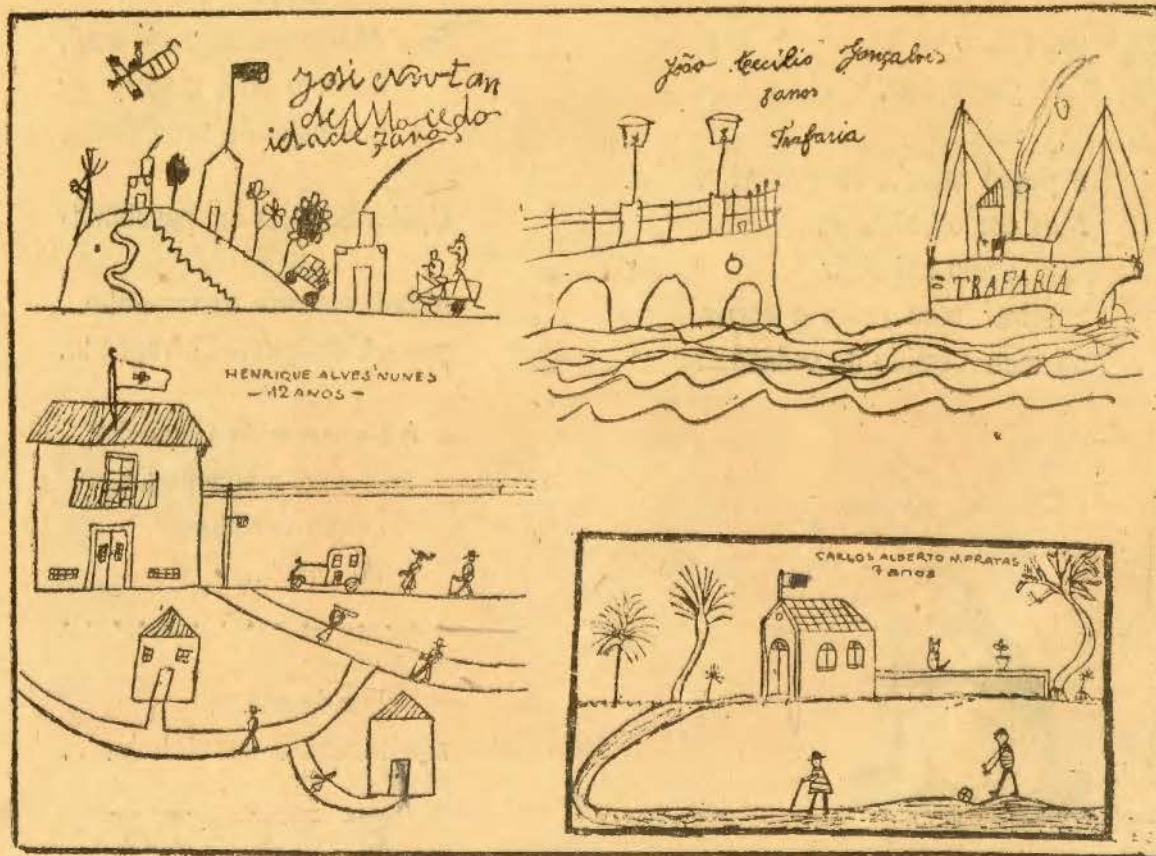 José Newton
de Macedo
idade 7 anos
João Cecílio Gonçalves
8 anos
Trafaria
TRAFARIA
HENRIQUE ALVES NUNES
-12 ANOS-
CARLOS ALBERTO N. PRATAS
7 anos